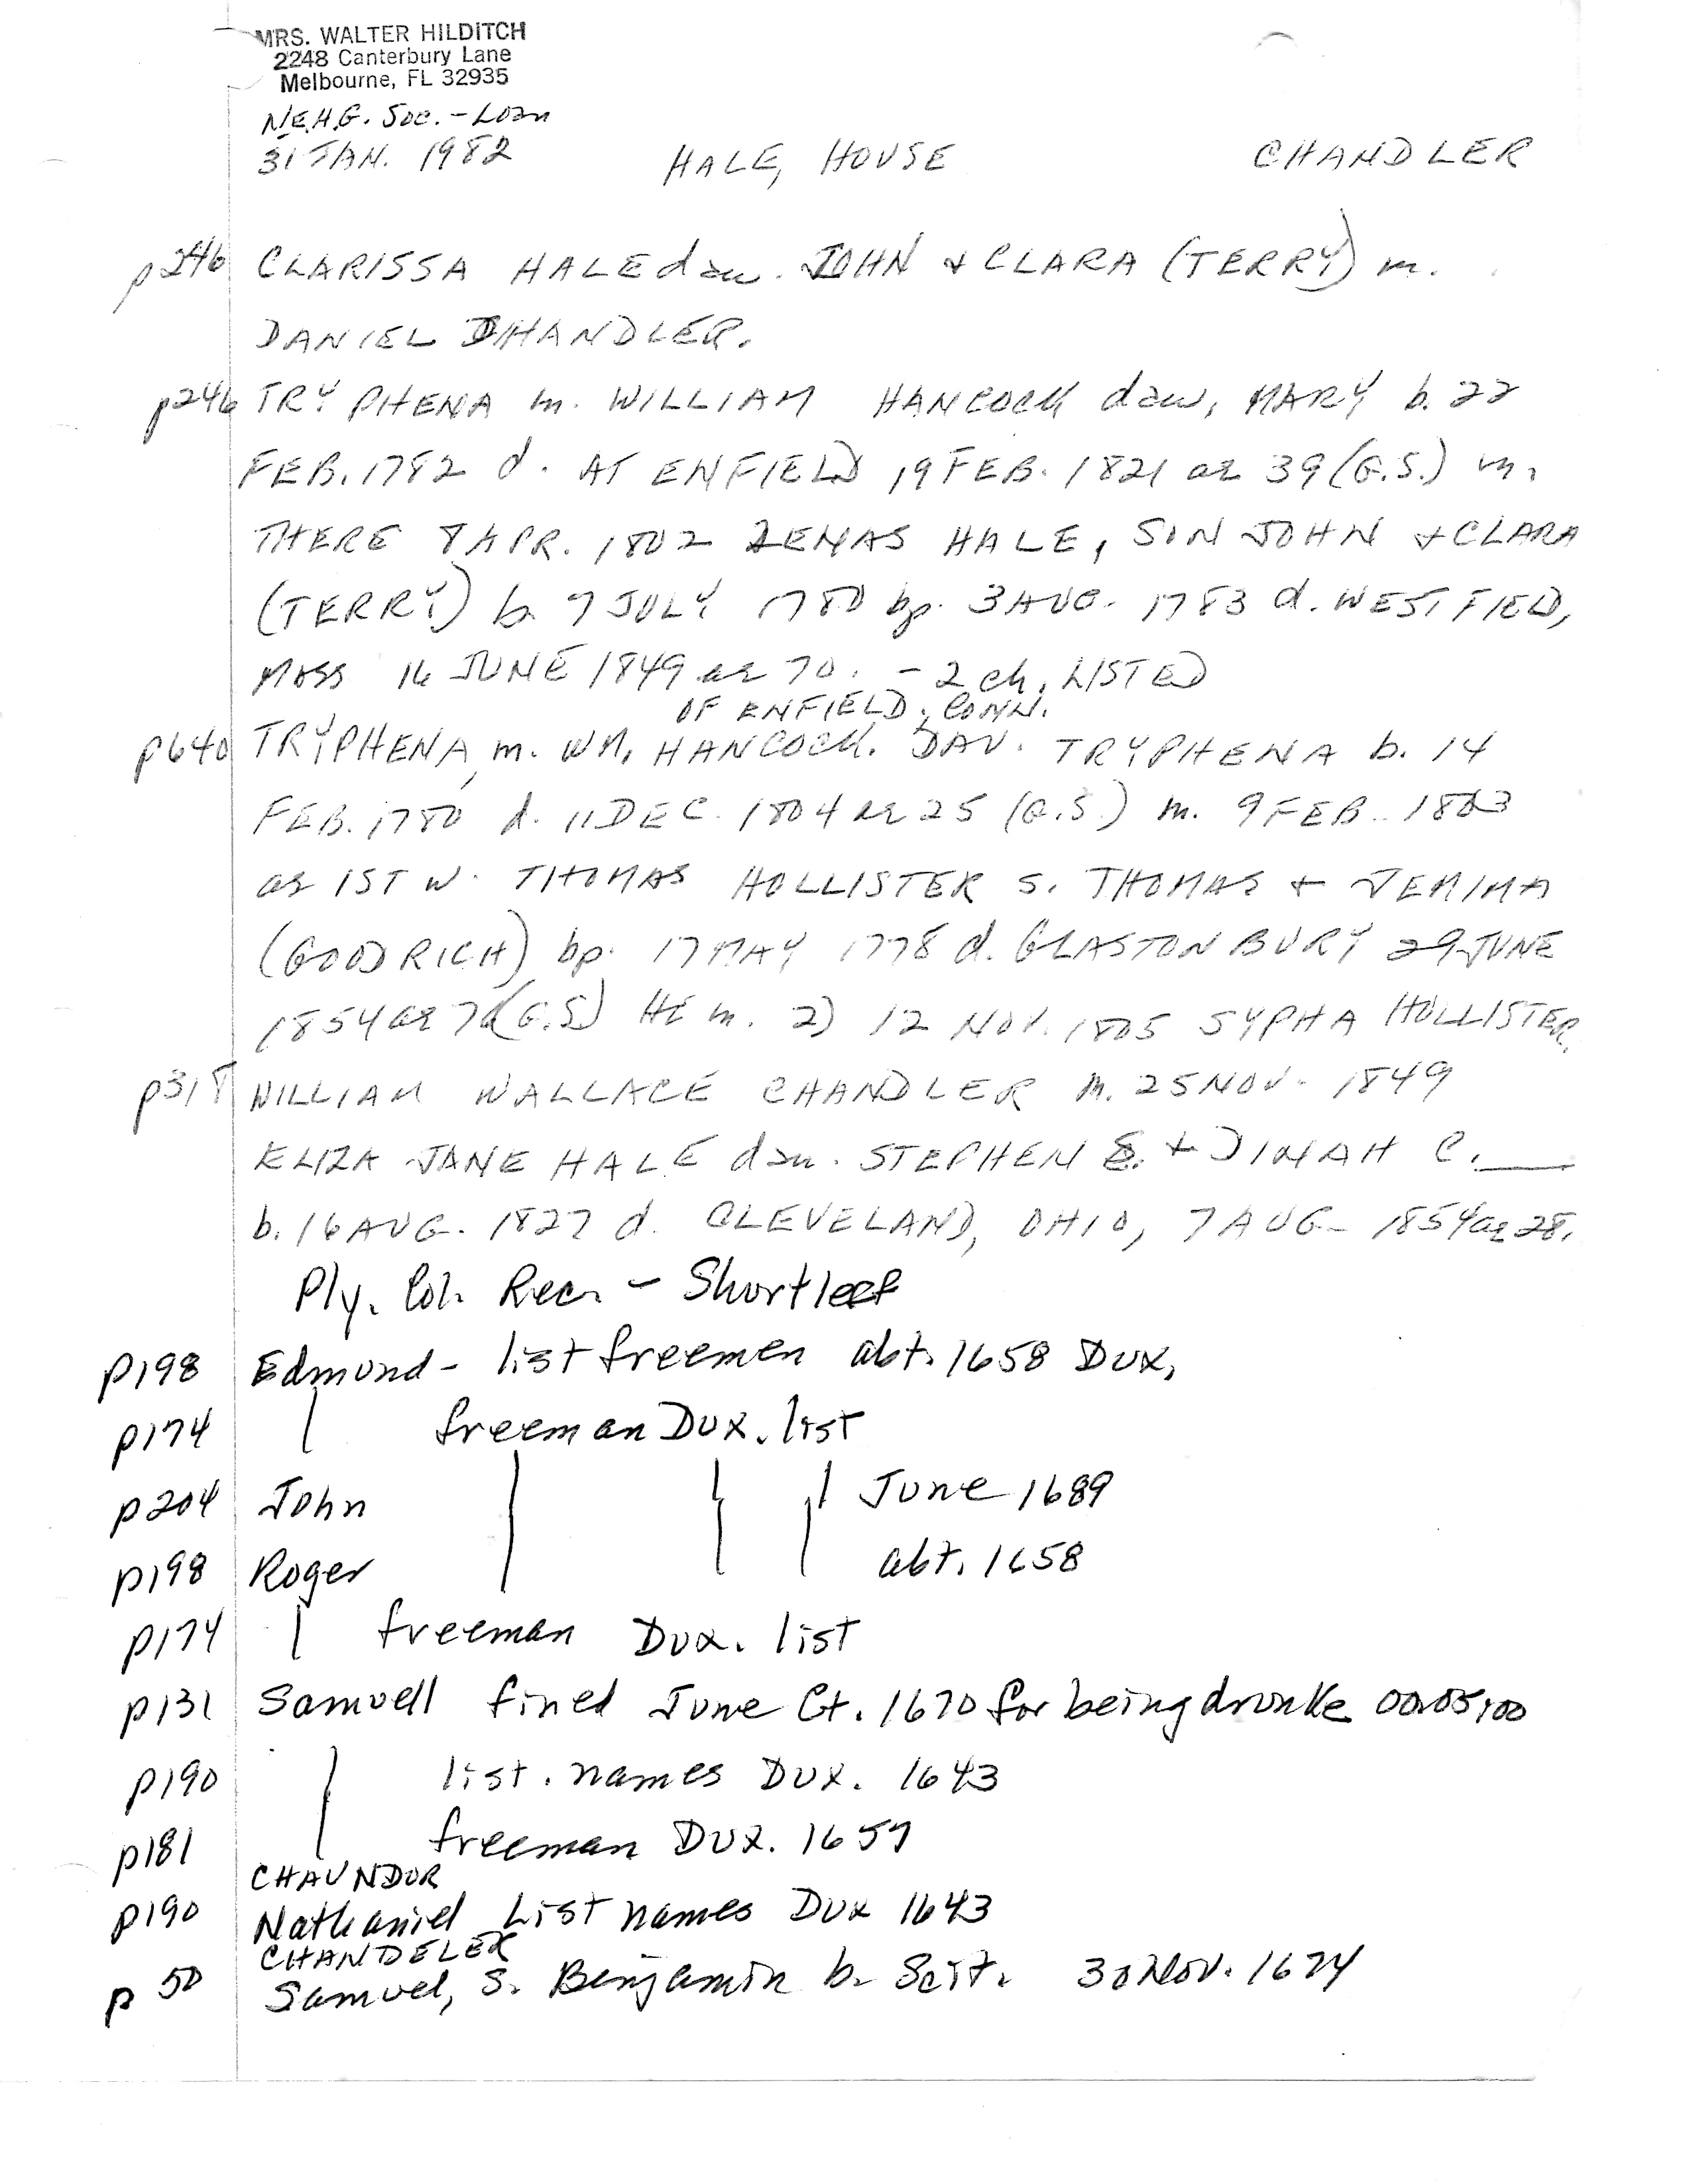 MRS. WALTER HILDITCH
2248 Canterbury Lane
Melbourne, FL 32935
N.E.H.G. Soc. - Loan
31 JAN. 1982 HALE, HOUSE CHANDLER
p246 CLARISSA HALE dau. JOHN & CLARA (TERRY) m.
DANIEL CHANDLER.
p246 TRYPHENA m. WILLIAM HANCOCK dau, MARY b. 22
FEB. 1782 d. AT ENFIELD 19 FEB. 1821 ae 39 (G.S.) m.
THERE 8 APR. 1802 ZENAS HALE, SON JOHN & CLARA
(TERRY) b 7 JULY 1780 bp. 3 AUG. 1783 d. WESTFIELD,
MASS 16 JUNE 1849 ae 70. - 2 ch. LISTED
OF ENFIELD, CONN.
p640 TRYPHENA, m. WM. HANCOCK. DAU. TRYPHENA b. 14
FEB. 1780 d. 11 DEC. 1804 ae 25 (G.S.) m. 9 FEB. 1803
as 1ST W. THOMAS HOLLISTER S. THOMAS + JEMIMA
(GOODRICH) bp. 17 MAY 1778 d. GLASTONBURY 29 JUNE
1854 ae (G.S) HE m. 2) 12 NOV. 1805 SYPHA HOLLISTER.
p318 WILLIAM WALLACE CHANDLER m. 25 NOV. 1849
ELIZA JANE HALE dau. STEPHEN E. + DINAH C. ___
b. 16 AUG. 1827 d. CLEVELAND, OHIO, 7 AUG - 1854 ae 28.
Ply. Col. Rec. - Shortleef
p198 Edmund - list freemen abt. 1658 Dux.
p174 freeman Dux. list
p204 John June 1689
p198 Roger abt. 1658
p174 freeman Dux. list
p131 Samuell fined June Ct. 1670 for being drunke 00:05:00
p190 list. names Dux. 1643
p181 freeman Dux. 1657
CHAUNDOR
p190 Nathaniel List names Dux 1643
CHANDELER
p 50 Samuel, S. Benjamin b. Scit. 30 Nov. 1674